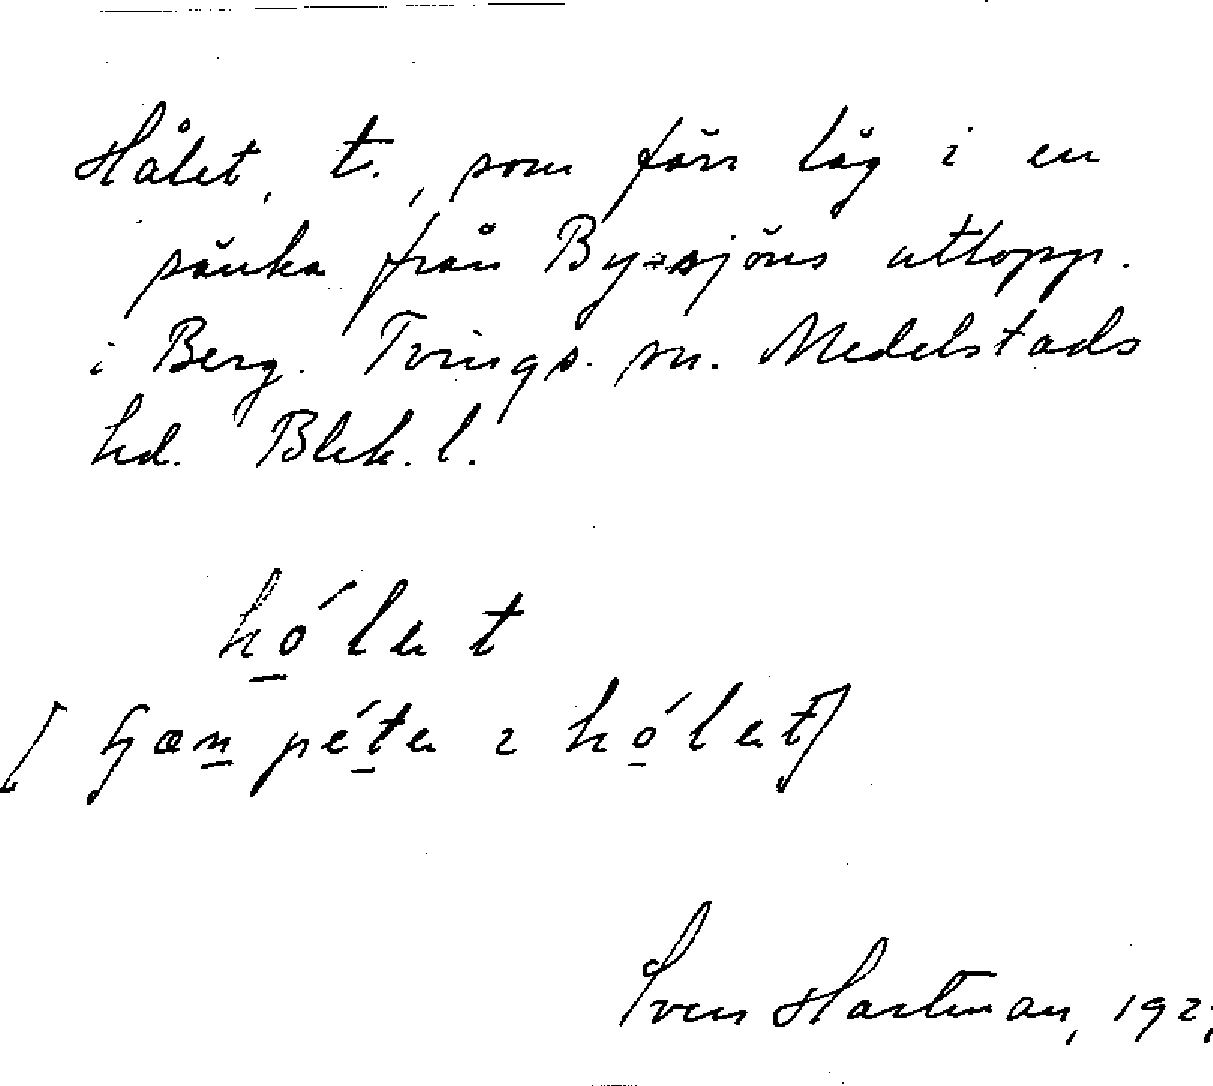 Hålet, t., som förr låg i en
sänka från Bysjöns utlopp.
i Berg. Tvings. sn. Medelstads
hd. Blek. l.
hólet
[ han péter i hólet]
Sven Hartman, 192